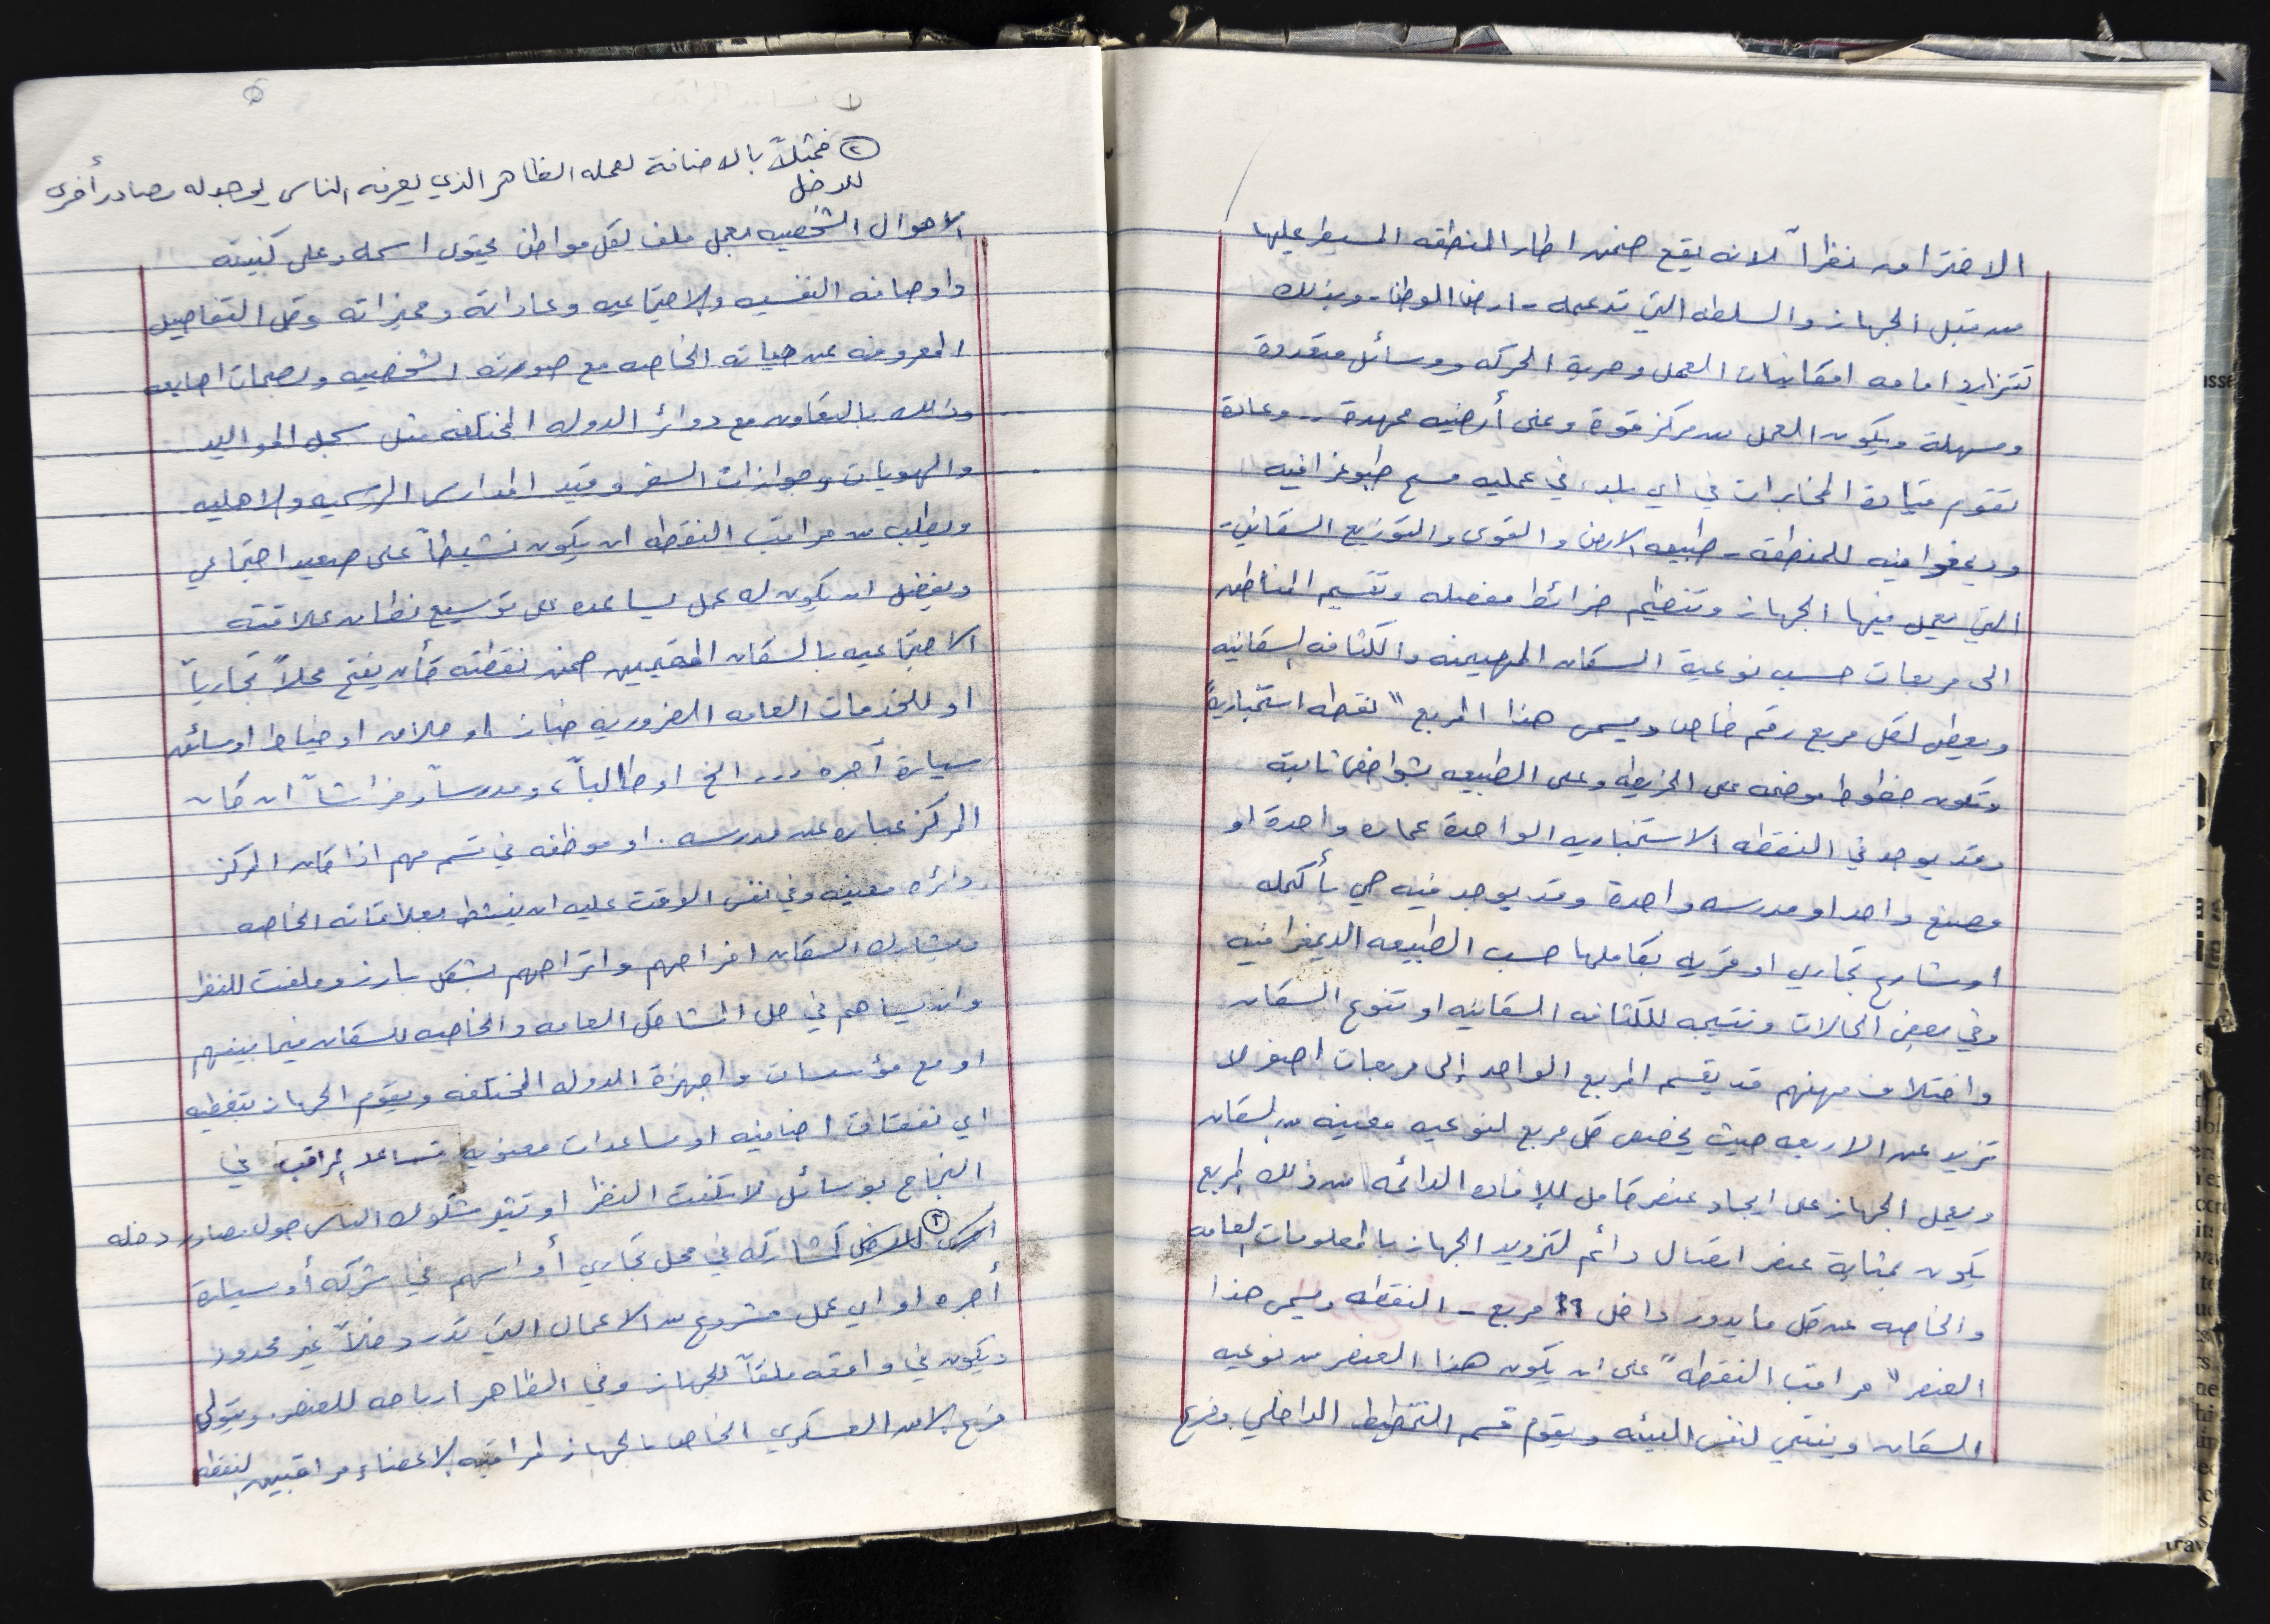 الاختراق نظراً لانه يقع ضمن اطار المنطقه المسيطر عليها
من قبل الجهاز والسلطه التي تدعمه - ارض الوطن - وبذلك
تتزايد امامه امكانيات العمل وحرية الحركه ووسائل متعددة
وسهلة ويكون العمل من مركز قوة وعلى أرضيه ممهدة .. وعادة
تقوم قيادة المخابرات في اي بلد، في عمليه مسح طبوغرافيه
وديمغرافيه للمنطقه - طبيعه الارض والقوى والتوزيع السكاني -
التي يعمل فيها الجهاز وتنظيم خرائط مفصله وتقسيم المناطق
الى مربعات حسب نوعية السكان المهيمنه والكثافه السكانيه
ويعطى لكل مربع رقم خاص ويسمى هذا المربع " نقطه استخبارية"
وتكون خطوط موضحه على الخريطه وعلى الطبيعه بشواخص ثابتة
وقد يوجد في النقطه الاستخباريه الواحدة عماره واحدة او
مصنع واحد او مدرسه واحدة وقد يوجد فيه حي بأكمله
او شارع تجاري او قريه بكاملها حسب الطبيعه الديمغرافيه
وفي بعض الحالات ونتيجه للكثافه السكانيه او تنوع السكان
واختلاف مهنهم قد يقسم المربع الواحد إلى مربعات اصغر لا
تزيد عن الاربعه حيث يخصص كل مربع لنوعيه معينه من السكان
ويعمل الجهاز على ايجاد عنصر كامل للإقامه الدائمه من ذلك المربع
يكون بمثابة عنصر اتصال دائم لتزويد الجهاز بالمعلومات العامه
والخاصه عن كل ما يدور داخل مربع - النقطه ويسمى هذا
العنصر " مراقب النقطه" على ان يكون هذا العنصر من نوعيه
السكان وينتمي لنفس البيئه ويقوم قسم التخطيط الداخلي وفرع
② فمثلاً بالاضافة لعمله الظاهر الذي يعرفه الناس يوجد له مصادر أخرى
للدخل
الاحوال الشخصيه بعمل ملف لكل مواطن يحتوى اسمه وعلى كنيته
واوصافه النفسيه والاجتماعيه وعاداته ومميزاته وكل التفاصيل
المعروفه عن حياته الخاصه مع صورته الشخصيه وبصمات اصابعه
وذلك بالتعاون مع دوائر الدوله المختلفه مثل سجل المواليد
والهويات وجوازات السفر وقيد المدارس الرسميه والاهليه
ويطلب من مراقب النقطه ان يكون نشيطاً على صعيد اجتماعي
ويفضل ان يكون له عمل يساعده على توسيع نطاق علاقته
الاجتماعيه بالسكان المقيمين ضمن نقطته كأن يفتح محلاً تجارياً
او للخدمات العامه الضروريه خباز او حلاق او خياط او سائق
سيارة أجره ... الخ او طالباً، ومدرساً وفراشاً ان كان
المركز عباره عن مدرسه . او موظفه في قسم مهم اذا كان المركز
دائره معينه وفي نفس الوقت عليه ان ينشط بعلاقاته الخاصه
ويشارك السكان افراحهم واتراحهم بشكل بارز وملفت للنظر
وان يساهم في حل المشاكل العامه والخاصه للسكان فيما بينهم
او مع مؤسسات واجهزة الدوله المختلفه ويقوم الجهاز بتغطيه
اي نفقات اضافيه او مساعدات معنويه تساعد المراقب في
النجاح بوسائل لا تلفت النظر او تثير شكوك الناس حول مصادر دخله
② كمشاركه في محل تجاري أو اسهم في شركه أو سيارة
أجره او اي عمل مشروع من الاعمال التي تدر دخلاً غير محدود
ويكون في واقعه ملكاً للجهاز وفي الظاهر ارباحه للعنصر. ويتولى
فرع الامن العسكري الخاص بالجهاز لمراقبه الاعضاء مراقبين النقطه